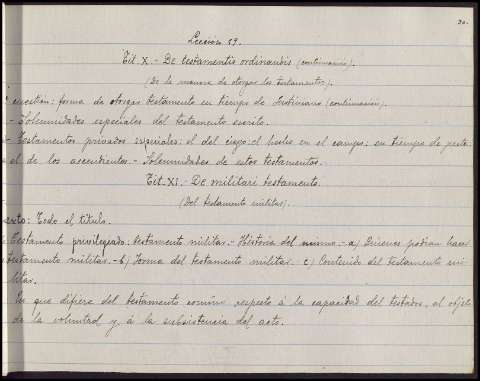 20.
Lección 59.
Tit. X. - De testamentis ordinandis (continuación).
(De la manera de otorgar los testamentos).
cuestión: forma de otorgar testamento en tiempo de Justiniano (continuación).
- Solemnidades especiales del testamento escrito.
- Testamentos privados especiales: el del ciego: el hecho en el campo: en tiempo de peste:
el de los ascendientes. - Solemnidades de estos testamentos.
Tit. XI. - De militari testamento.
(Del testamento militar).
texto: Todo el título.
Testamento privilegiado: testamento militar. - Historia del mismo. - a) Quienes podían hacer
testamento militar. - b) Forma del testamento militar. - c) Contenido del testamento mi-
litar.
En que difiere del testamento común respecto à la capacidad del testador, al objeto
de la voluntad y, á la subsistencia del acto.